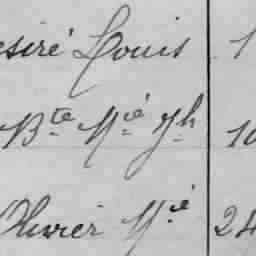 esiré Louis 1
Bte Mie Jh 10
Olivier Mié 24